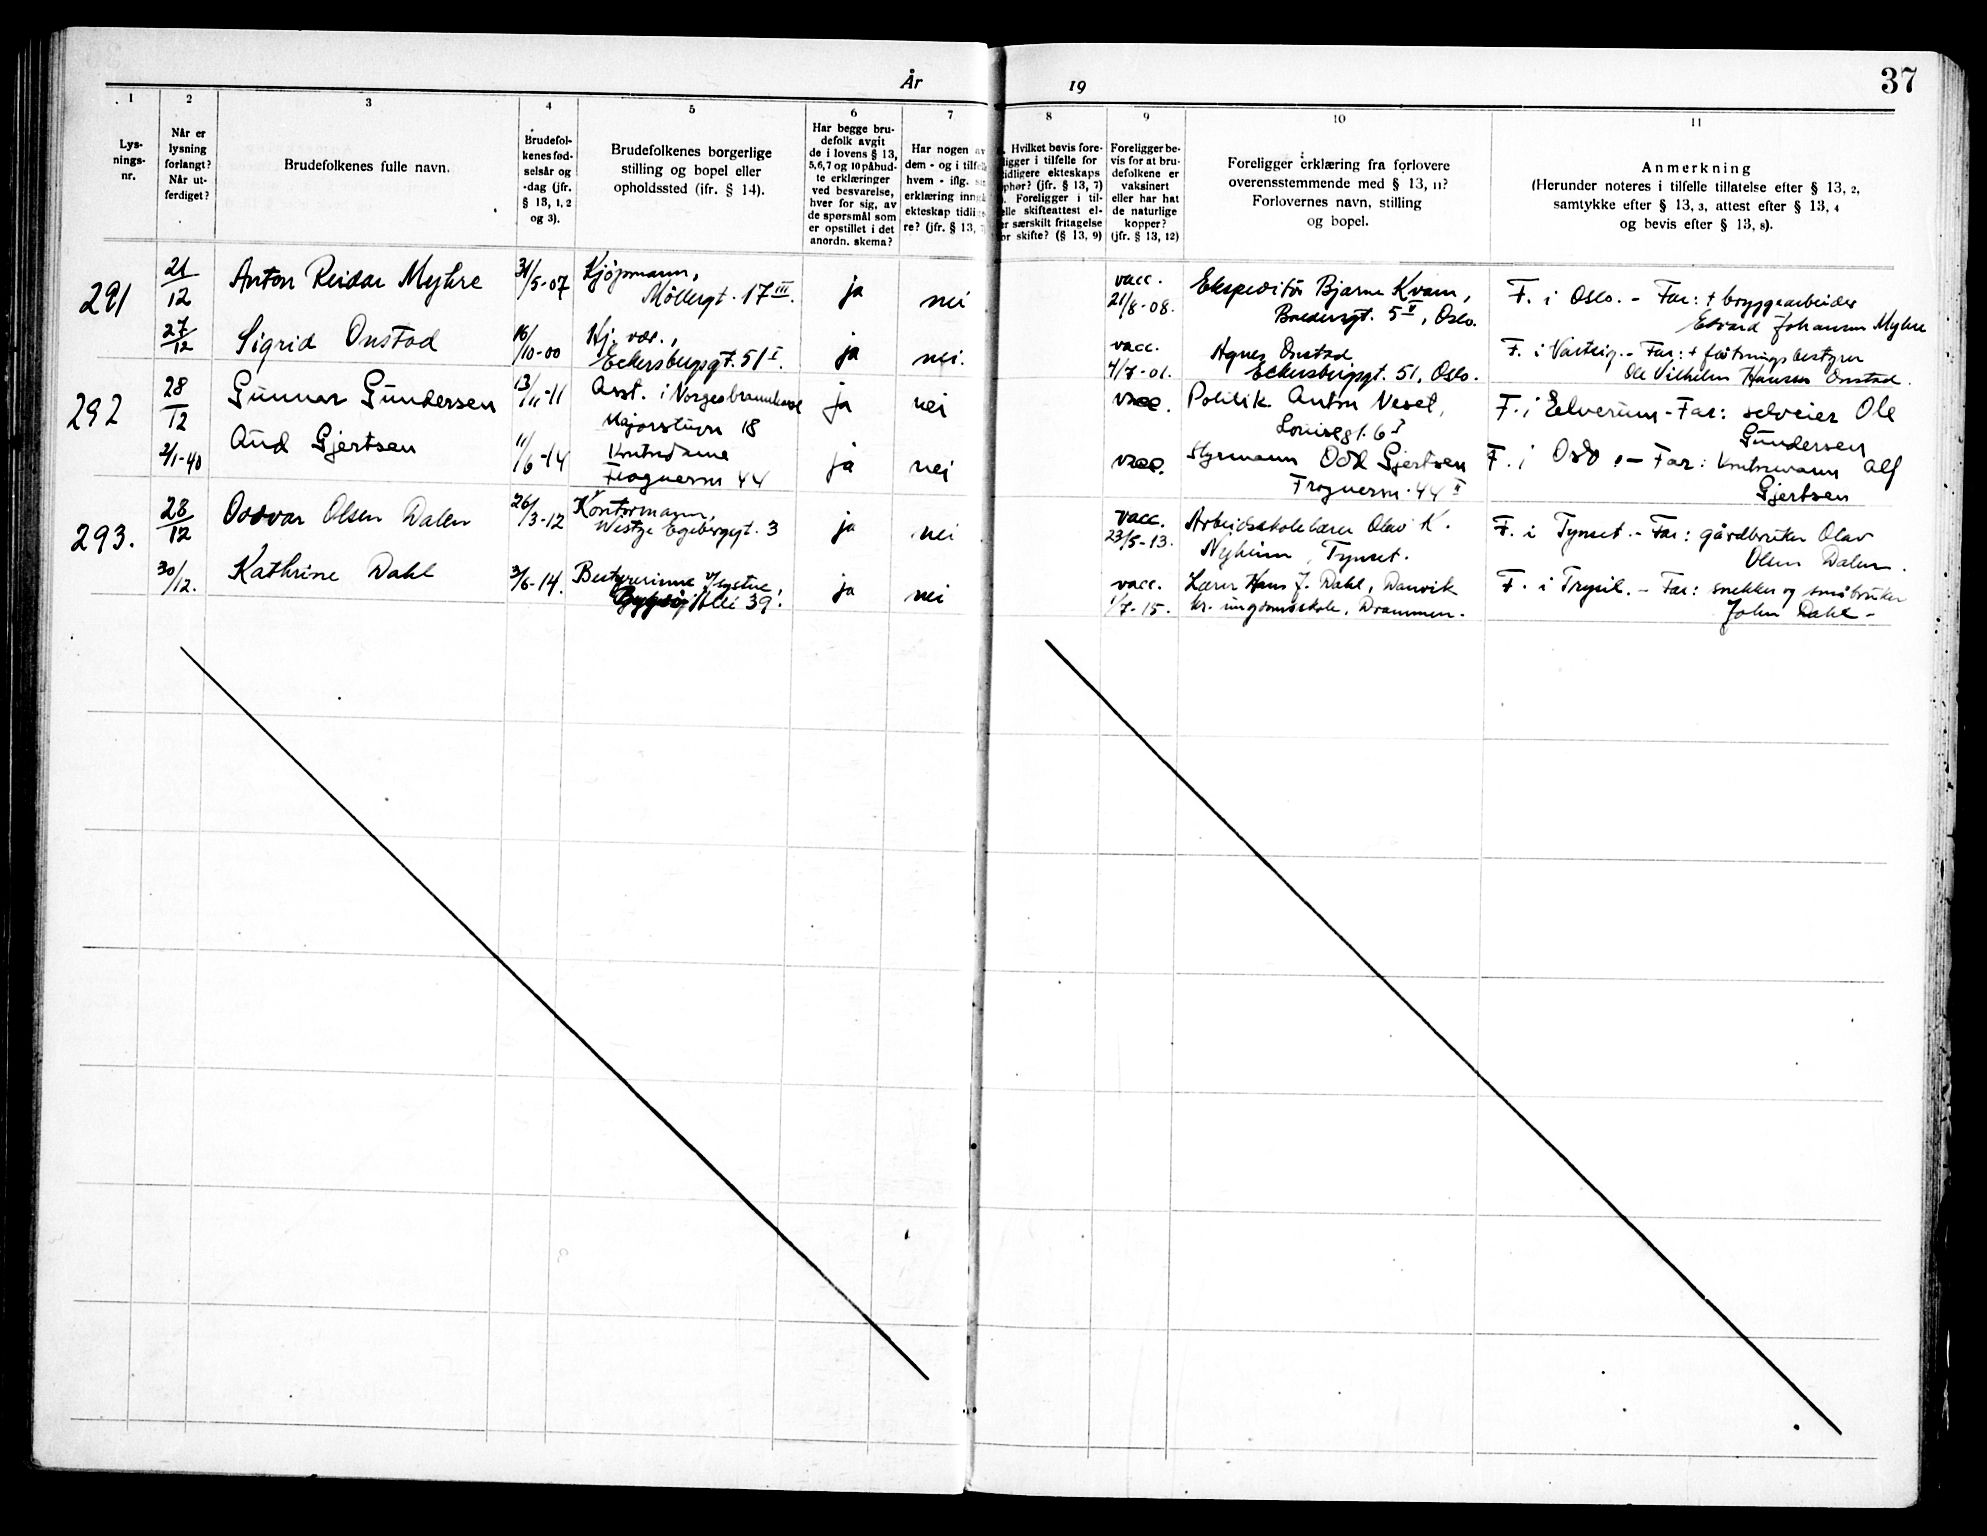 År 19
37
1 2 3 4 5 6 7 8 9 10 11
Lys-
nings-
nr.
Når er
lysning
forlangt?
Når ut-
ferdiget?
Brudefolkenes fulle navn.
Brudefol-
kenes fød-
selsår og
-dag (jfr.
§ 13, 1, 2
og 3).
Brudefolkenes borgerlige
stilling og bopel eller
opholdssted (ifr. § 14).
Har begge bru-
defolk avgit
de i lovens § 13,
5,6,7 og 10 påbud-
te erklæringer
ved besvarelse,
hver for sig, av
de spørsmål som
er opstillet i det
anordn. skema?
Har nogen av
dem - og i tilfelle
hvem - iflg.
erklæring inng
ekteskap tidlige-
re? (jfr. § 13,
Hvilket bevis fore-
ligger i tilfelle for
tidligere ekteskaps
ophør? (jfr. § 13, 7)
Foreligger i til-
felle skifteattest el-
er særskilt fritagelse
for skifte? (§ 13, 9)
Foreligger be-
vis for at bru-
defolkene er
vaksinert
eller har hat
de naturlige
kopper?
(jfr. § 13, 12)
Foreligger erklæring fra forlovere
overensstemmende med § 13, 11?
Forlovernes navn, stilling
og bopel.
Anmerkning
(Herunder noteres i tilfelle tillatelse efter § 13, 2,
samtykke efter § 13, 3, attest efter § 13, 4
og bevis efter § 13, 8).
291
21/12
Anton Reidar Myhre
31/5-07
Kjøpmann,
Möllergt. 17 III.
ja
nei
vacc.
21/8-08.
Ekspeditör Bjarne Kvam,
Baldersgt. 5 II, Oslo.
F. i Oslo. - Far: + bryggearbeider
Edvard Johansen Myhre
27/12
Sigrid Onstad
16/10-00
Hj. vær.,
Eckersbergsgt. 51 I.
ja
nei.
vacc.
4/7-01.
Agnes Onstad
Eckersbergsgt. 51, Oslo.
F. i Varteig. - Far: +
Ole Vilhelm Hansen Onstad.
292
28/12
Gunnar Gundersen
13/11-11
Asst. i Norges brannkasse
Majorstuvn 18
ja
nei
vacc.
Politik. Anton Veset,
Louisesgt. 6 I
F. i Elverum - Far: selveier Ole
Gundersen
2/1-40
Aud Gjertsen
11/6-14
Kontordame
Frognervn 44
ja
nei
vacc.
Styrmann Odd Gjertsen
Frognervn. 44 II
F. i Oslo. - Far: kontormann Alf
Gjertsen
293.
28/12
Oddvar Olsen Dalen
26/3-12
Kontormann,
Westye Egebergsgt. 3
ja
nei
vacc.
23/5-13.
Arbeidsskolelærer Olav K.
Nyheim, Tynset.
F. i Tynset. - Far: gårdbruker Olav
Olsen Dalen.
30/12.
Kathrine Dahl
3/6-14.
Bestyrerinne v/systue,
Bygdøy Allé 39.
ja
nei
vacc.
1/7-15.
Lærer Hans J. Dahl, Danvik
kr. ungdomsskole, Drammen.
F. i Trysil. - Far: snekker og småbruker
John Dahl -